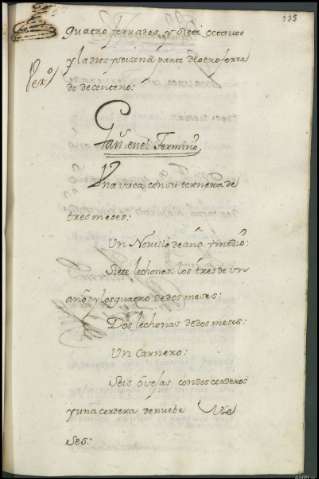 335
quatro ferrados, y diez
y la sesta parte de otro ferrado
de centeno:
Ganº en el Termino
Una vaca con su ternera de
tres meses:
Un Novillo de año y medio:
Siete lechones los tres de Un
año y los quatro de dos meses:
Dos lechonas de dos meses:
Un Carnero:
Seis Ovejas con dos corderos
y una cordera de nuebe Me
ses: